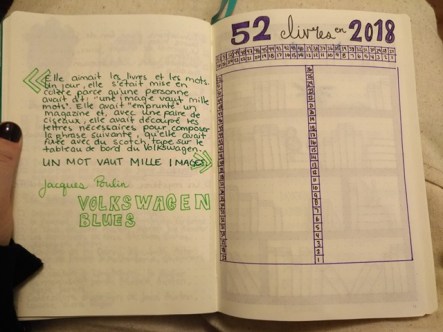 « Elle aimait les livres et les mots.
Un jour, elle s'était mise en
colère parce qu'une personne
avait dit: "une image vaut mille
mots". Elle avait "emprunté" un
magazine et, avec une paire de
ciseaux, elle avait découpé les
lettres nécessaires pour composer
la phrase suivante, qu'elle avait
fixée avec du scotch tape sur le
tableau de bord du Volkswagen:
UN MOT VAUT MILLE IMAGES. »
Jacques Poulin
VOLKSWAGEN
BLUES
52 livres en 2018